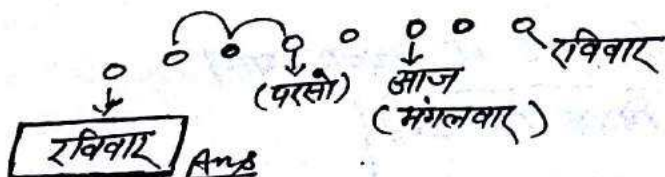 रविवार
(परसो) आज
(मंगलवार)
रविवार Ans